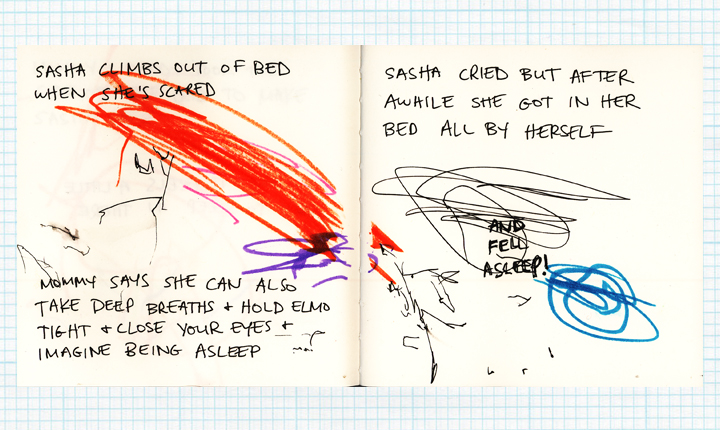 SASHA CLIMBS OUT OF BED
WHEN SHE'S SCARED
MOMMY SAYS SHE CAN ALSO
TAKE DEEP BREATHS + HOLD ELMO
TIGHT + CLOSE YOUR EYES +
IMAGINE BEING ASLEEP
SASHA CRIED BUT AFTER
AWHILE SHE GOT IN HER
BED ALL BY HERSELF
AND
FELL
ASLEEP!